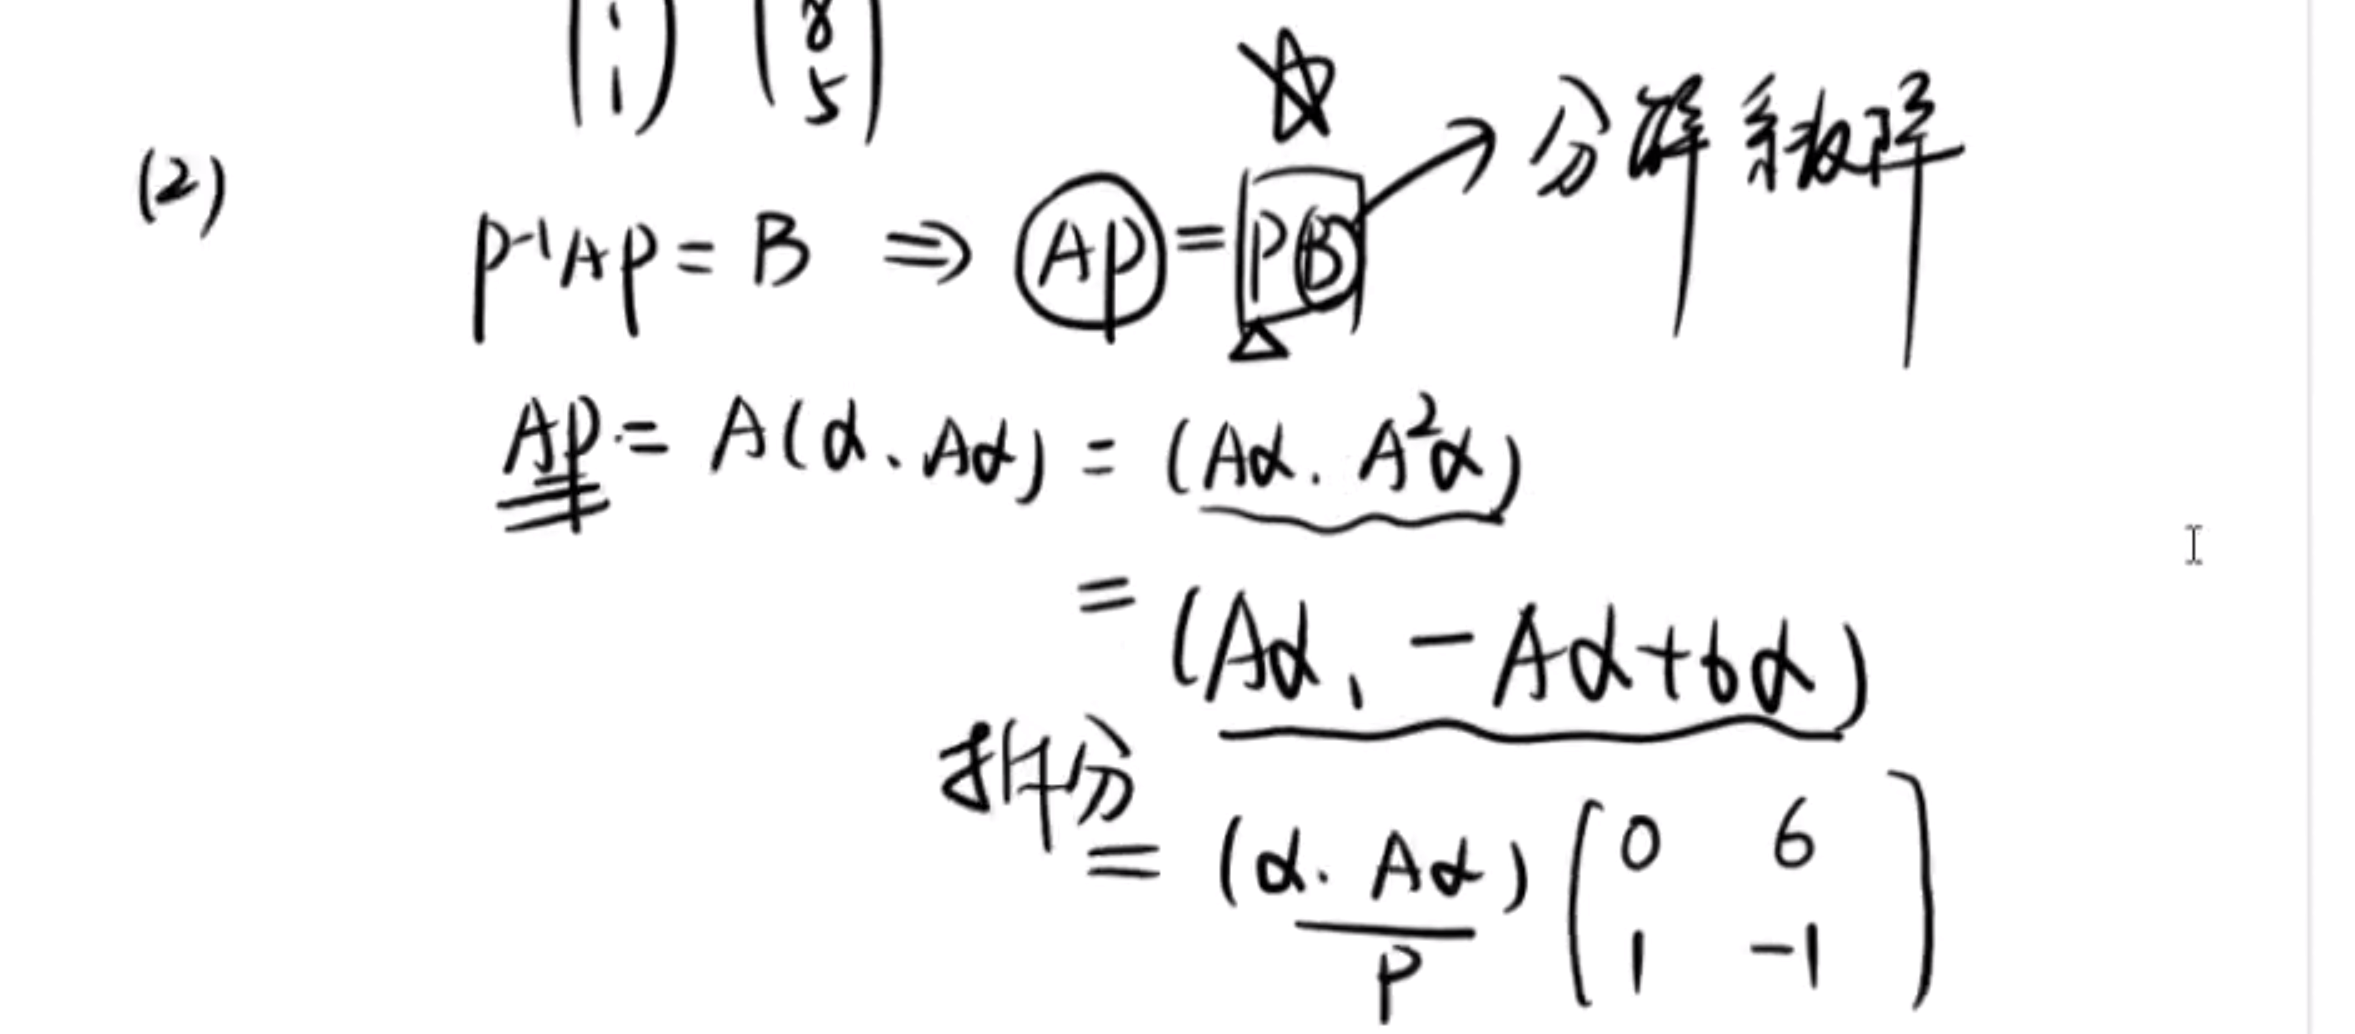 (i 1) (8 5)
(2)
P⁻¹AP = B ⇒ AP = PB → 分解系数阵
AP = A(α、Aα) = (Aα. A²α)
= (Aα、-Aα+6α)
拆分
= (α. Aα) (0 6
P 1 -1)